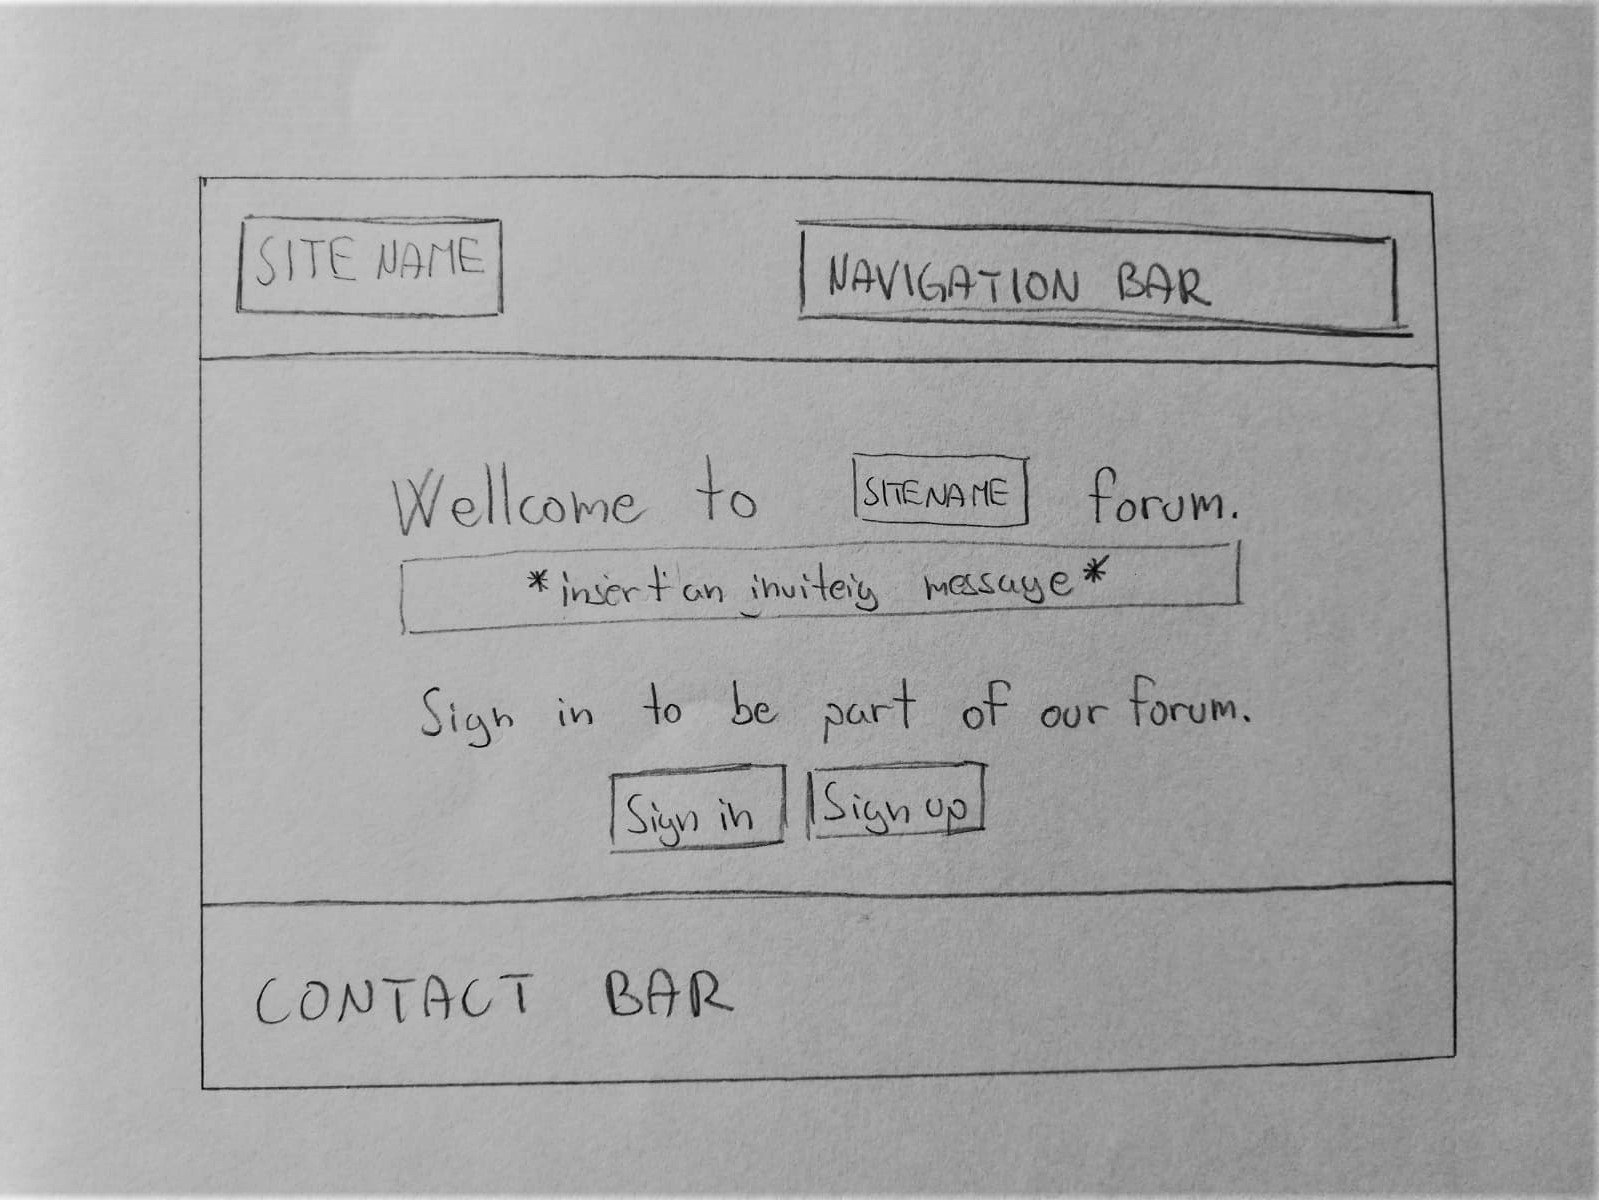 SITE NAME
NAVIGATION BAR
Wellcome to SITENAME forum.
*insert an inviteig message*
Sign in to be part of our forum.
Sign in
Sign up
CONTACT BAR